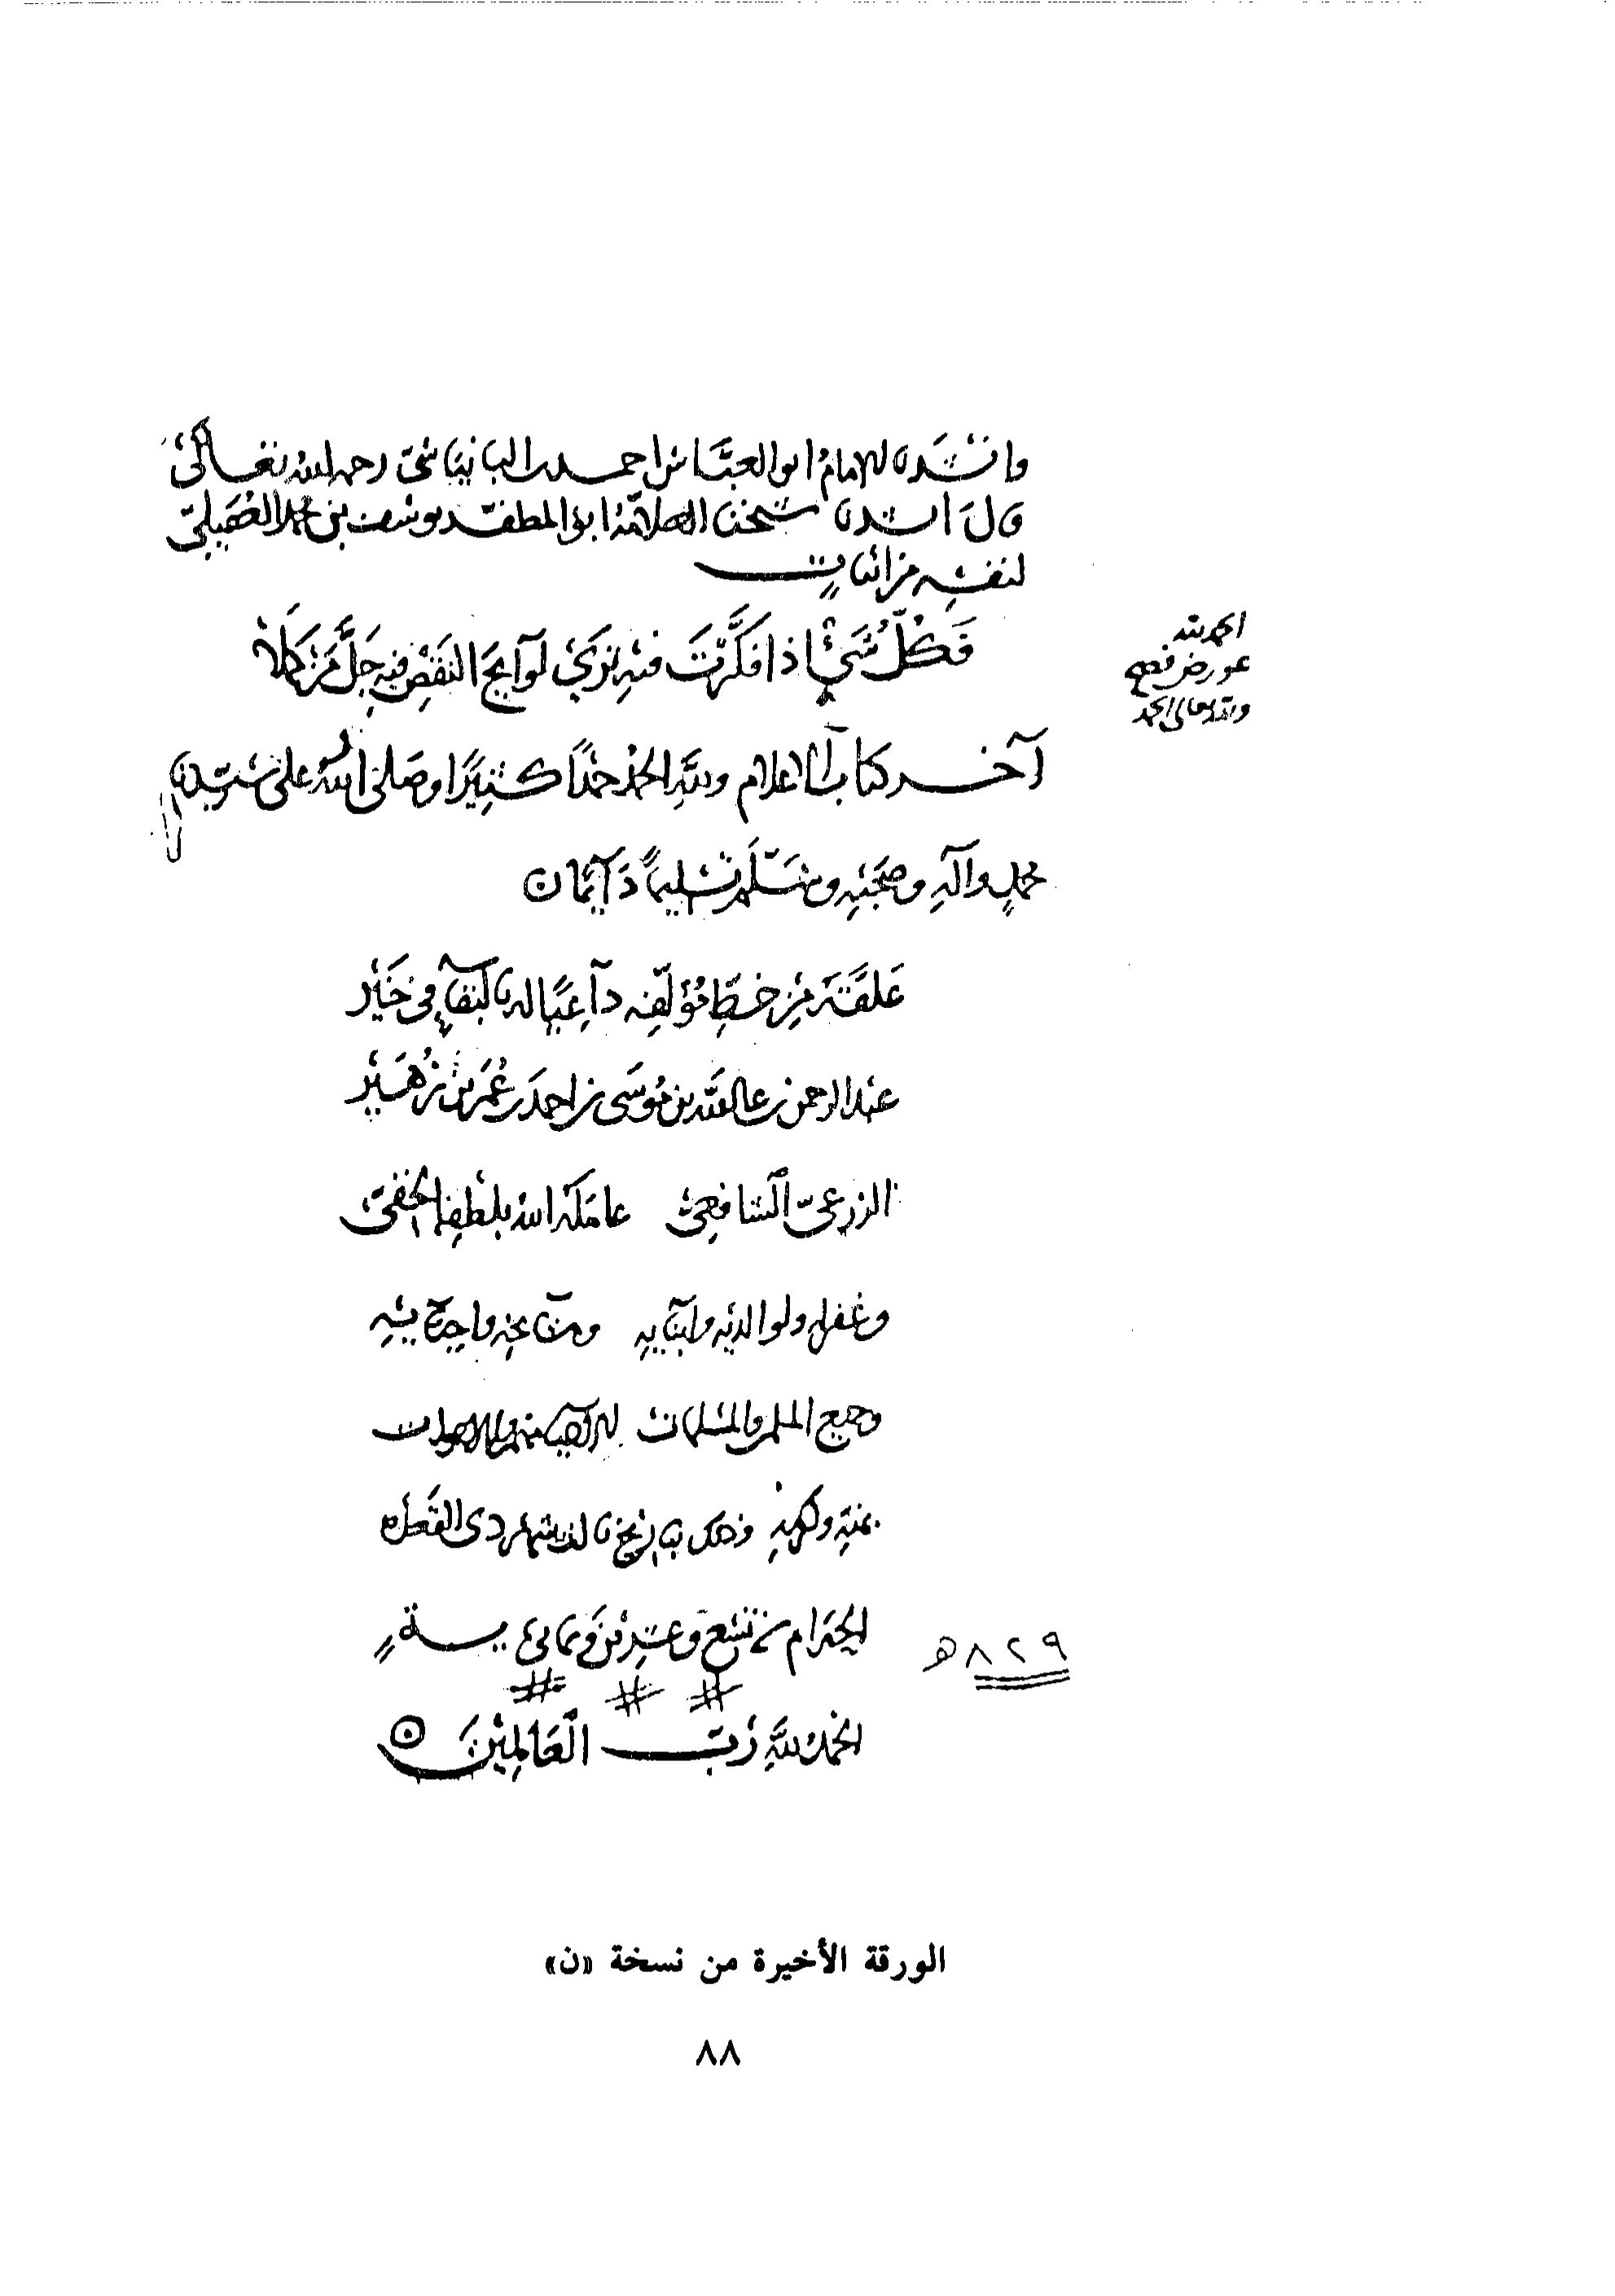 وانشدنا الامام ابو العباس احمد البانياسي رحمه الله تعالى
قال انشدنا شيخنا العلامة ابو المظفر يوسف بن محمد
لنفسه من ابيات
فَكُلُّ شَيْءٍ اذا فكَّرْتَ فيه ترى لوائح النقص فيه جَلَّ مَنْ كملا
الحمد لله
عورض فصح
ولله تعالى الحمد
آخر كتاب الاعلام ولله الحمد حمدًا كثيرًا وصلى الله على سيدنا
محمدٍ وآله وصحبه وسلم تسليمًا دَآئما
عَلقَهُ مِن خطِّ مُؤلّفِه دآعيًا له بالبقآءِ في خَيْر
عبد الرحمن بن عبد الله بن مُوسَى بن احمد بن عُمَر بن زُهَيْر
الزرعيّ الشافعيّ عامَله الله بلطفه الخفيّ
وغفر له ولوالديه ولابنايه ومشايخه
وجميع المسلمين والمسلمات الاحياء منهم والاموات
بمنِّه وكرمه وذلك بتاريخ ثالث شهر ذى القعدة
الحَرام سنة تسع وعشرين وثمانمايةٍ
٨٢٩ هـ
الحمدُ للهِ رَبّ الْعَالمِيْنَ
الورقة الأخيرة من نسخة «ن»
٨٨